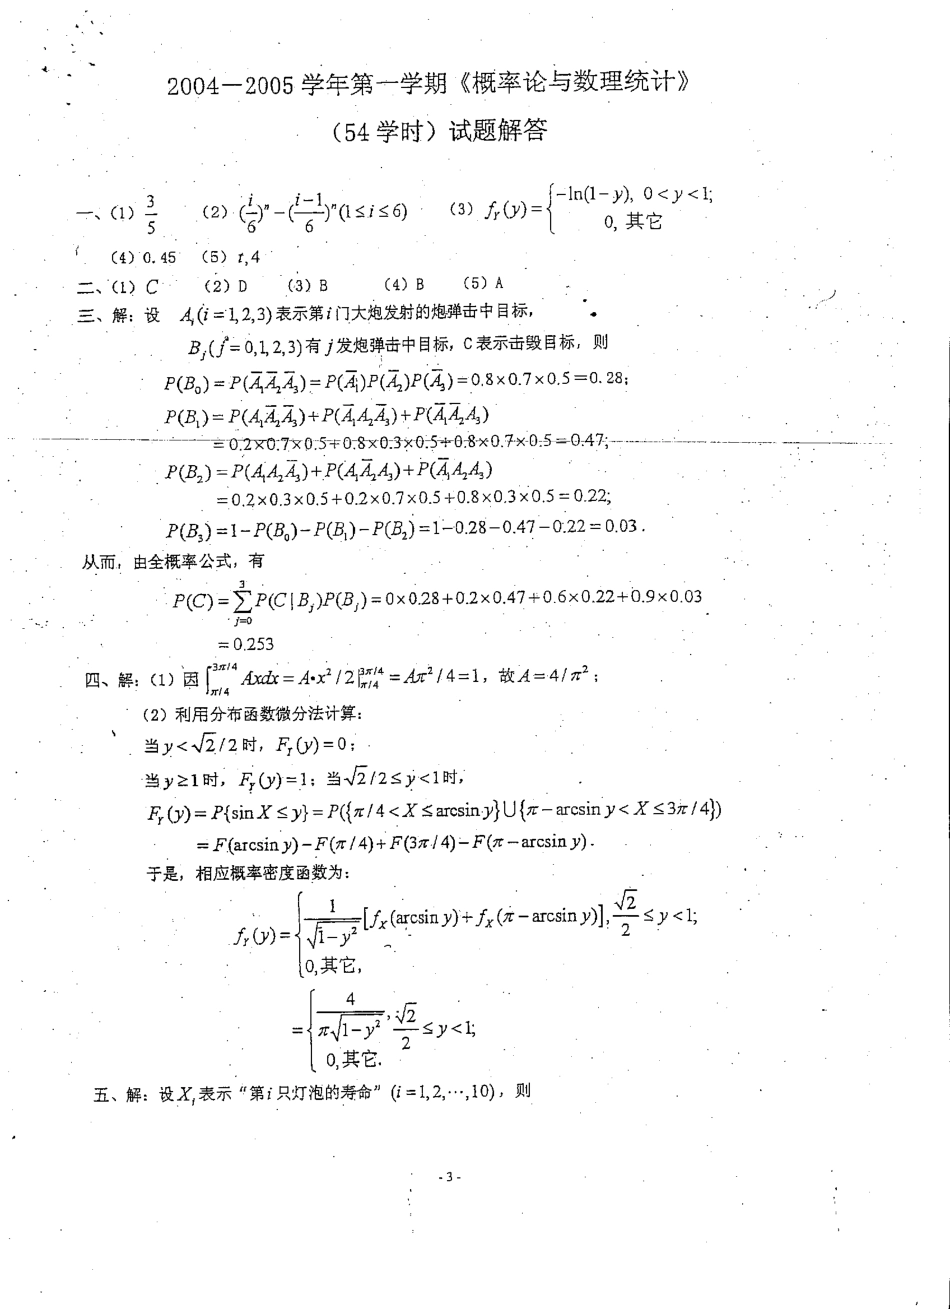 2004—2005 学年第一学期《概率论与数理统计》
（54 学时）试题解答
一、(1) 3/5 (2) (i/6)^n − ((i−1)/6)^n (1≤i≤6) (3) f_Y(y)={−ln(1−y), 0<y<1; 0, 其它
(4) 0.45 (5) t,4
二、(1) C (2) D (3) B (4) B (5) A
三、解：设 A_i(i=1,2,3)表示第i门大炮发射的炮弹击中目标，
B_j(j=0,1,2,3)有j发炮弹击中目标，C表示击毁目标，则
P(B_0)=P(A̅_1A̅_2A̅_3)=P(A̅_1)P(A̅_2)P(A̅_3)=0.8×0.7×0.5=0.28;
P(B_1)=P(A_1A̅_2A̅_3)+P(A̅_1A_2A̅_3)+P(A̅_1A̅_2A_3)
=0.2×0.7×0.5+0.8×0.3×0.5+0.8×0.7×0.5=0.47;
P(B_2)=P(A_1A_2A̅_3)+P(A_1A̅_2A_3)+P(A̅_1A_2A_3)
=0.2×0.3×0.5+0.2×0.7×0.5+0.8×0.3×0.5=0.22;
P(B_3)=1−P(B_0)−P(B_1)−P(B_2)=1−0.28−0.47−0.22=0.03.
从而，由全概率公式，有
P(C)=∑_{j=0}^{3}P(C|B_j)P(B_j)=0×0.28+0.2×0.47+0.6×0.22+0.9×0.03
=0.253
四、解：(1) 因∫_{π/4}^{3π/4}Axdx=A•x²/2|_{π/4}^{3π/4}=Aπ²/4=1，故A=4/π²；
(2) 利用分布函数微分法计算：
当y<√2/2时，F_Y(y)=0；
当y≥1时，F_Y(y)=1；当√2/2≤y<1时，
F_Y(y)=P{sin X≤y}=P({π/4<X≤arcsin y}∪{π−arcsin y<X≤3π/4})
=F(arcsin y)−F(π/4)+F(3π/4)−F(π−arcsin y).
于是，相应概率密度函数为：
f_Y(y)={1/√(1−y²)[f_X(arcsin y)+f_X(π−arcsin y)], √2/2≤y<1;
0,其它,
={4/(π√(1−y²)), √2/2≤y<1;
0,其它.
五、解：设X_i表示“第i只灯泡的寿命”(i=1,2,⋯,10)，则
-3-